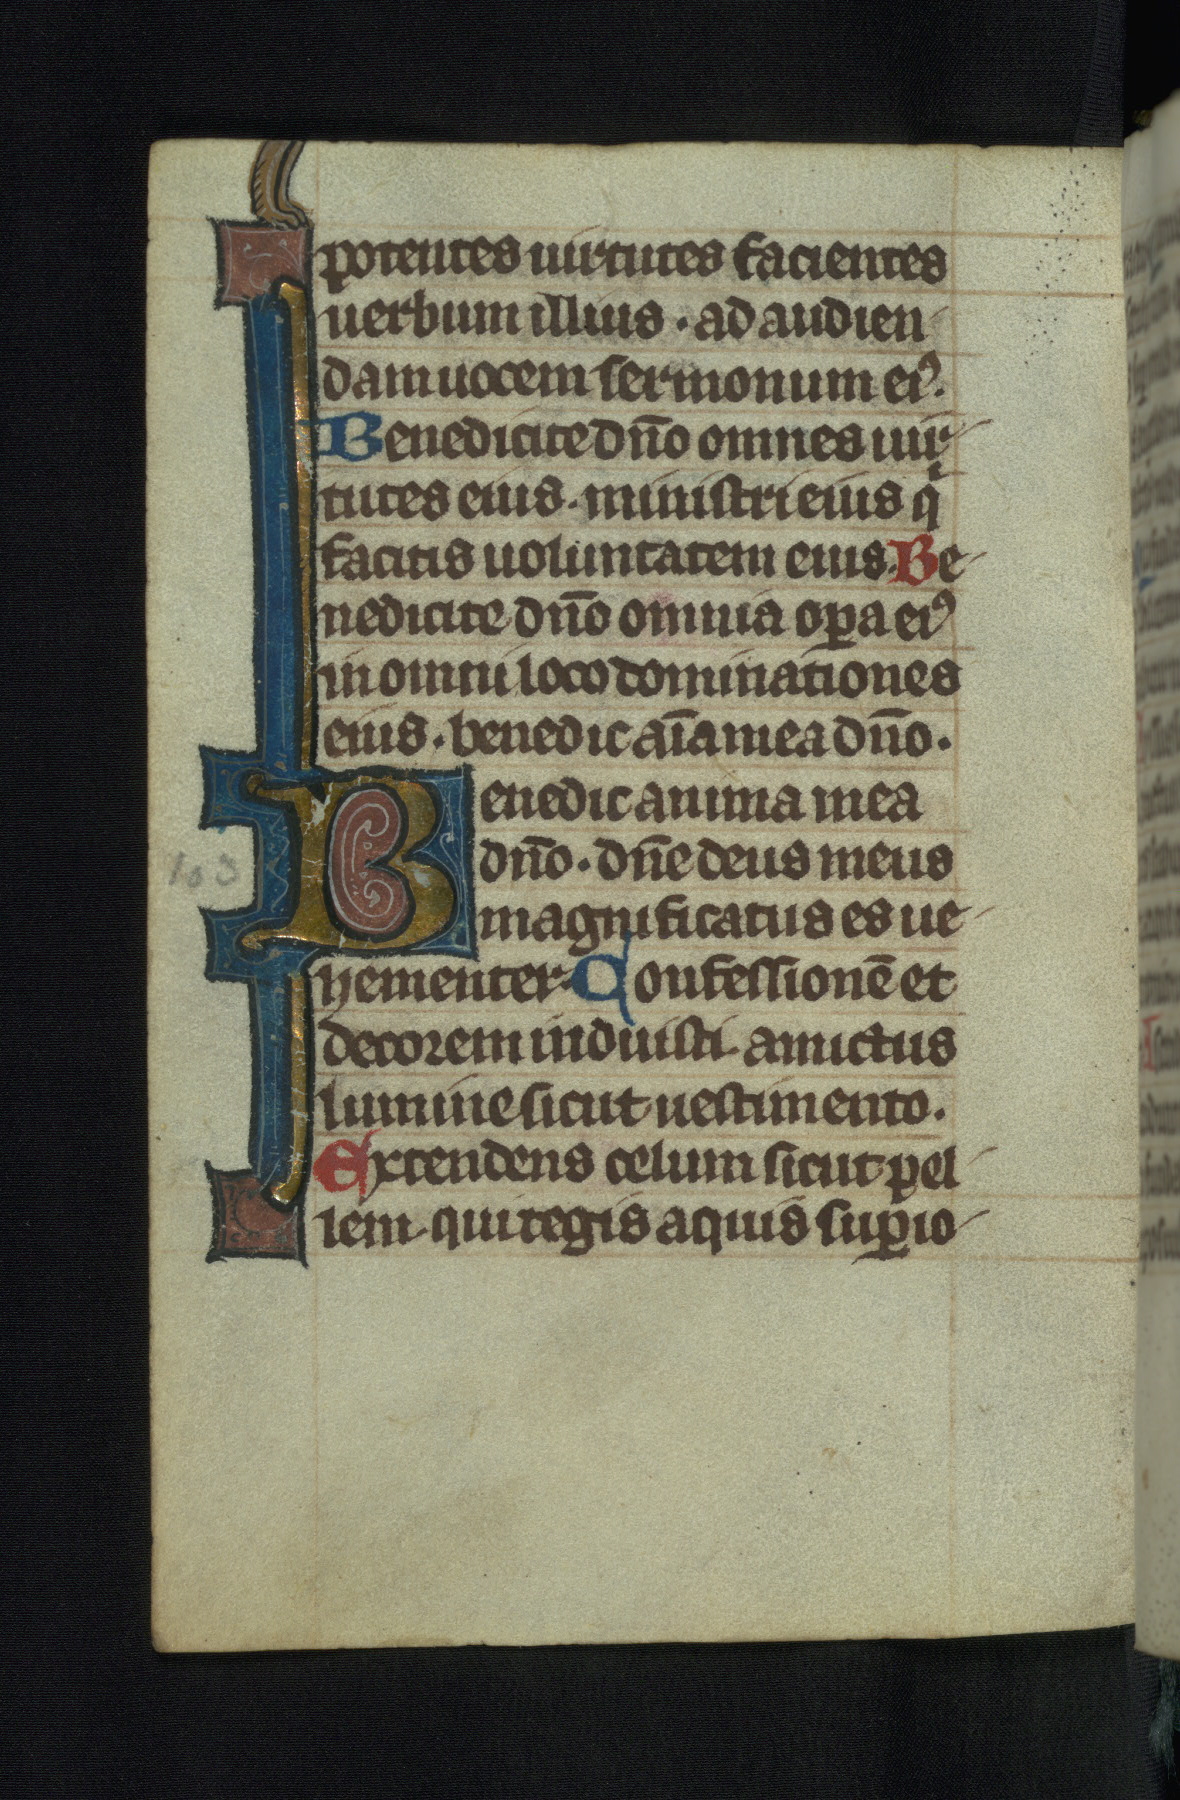 potentes uirtutes facientes
uerbum illius · ad audien
dam uocem sermonum eiꝰ.
Benedicite dn̄o omnes uir
tutes eius · ministri eius qͥ
facitis uoluntatem eius. Be
nedicite dn̄o omnia oꝑa eiꝰ
in omni loco dominationes
eius · benedic aīa mea dn̄o ·
Benedic anima mea
dn̄o · dn̄e deus meus
103
magnificatus es ue
hementer. Confessionē et
decorem induisti amictus
lumine sicut uestimento.
Extendens celum sicut pel
lem qui tegis aquis suꝑio